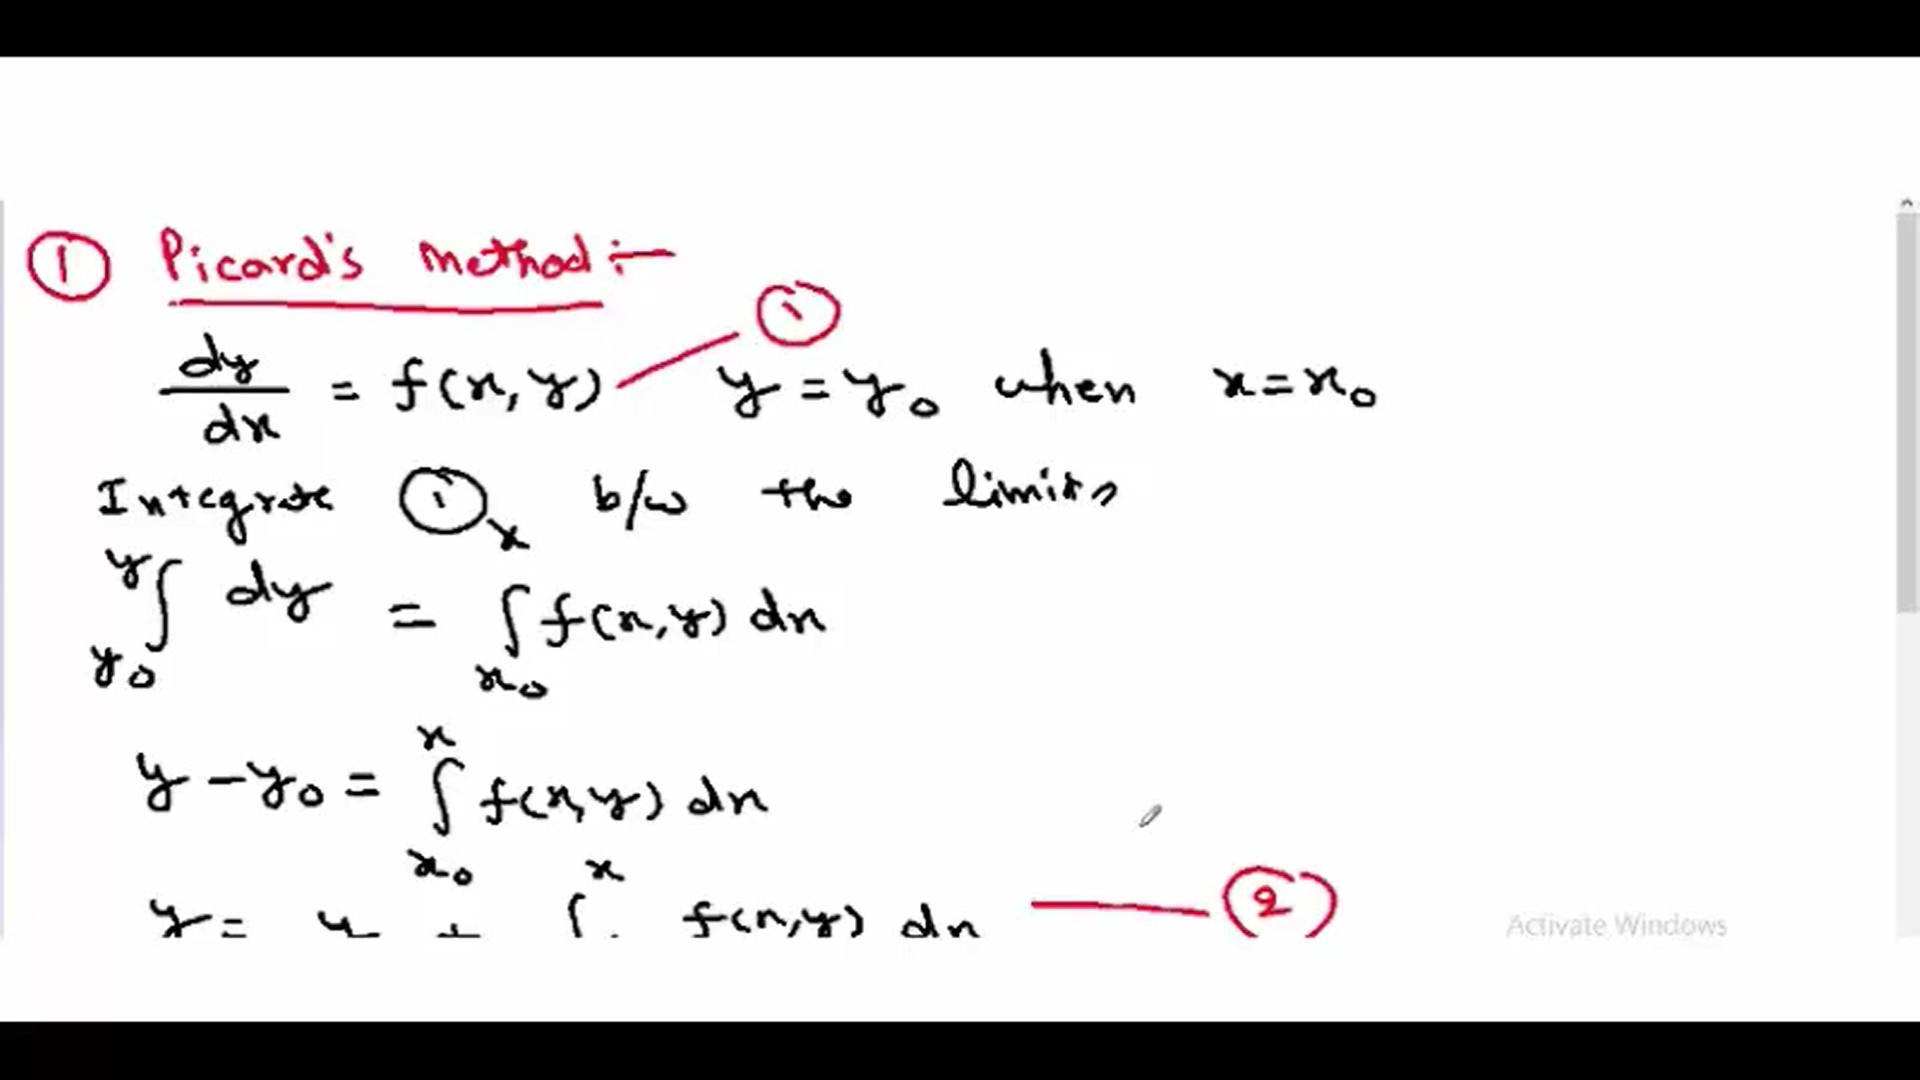 ① Picard's method :-
dy/dx = f(x, y) — ① y = y₀ when x = x₀
Integrate ① b/w the limits
∫_{y₀}^{y} dy = ∫_{x₀}^{x} f(x, y) dx
y - y₀ = ∫_{x₀}^{x} f(x, y) dx
y = y + ∫^{x} f(x, y) dx — ②
Activate Windows